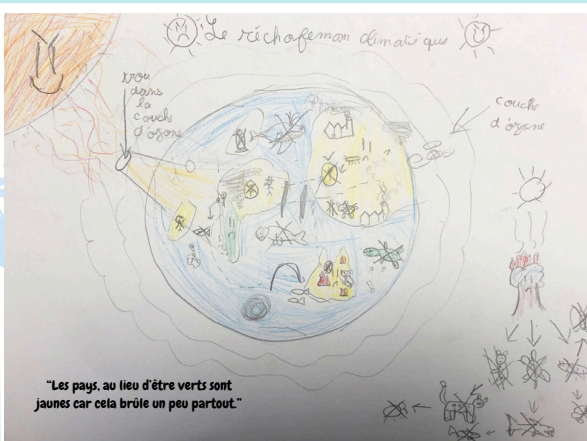 Le réchofeman climatique
trou
dans
la
couche
d'ozone
couche
d'ozone
“Les pays, au lieu d'être verts sont
jaunes car cela brûle un peu partout.”